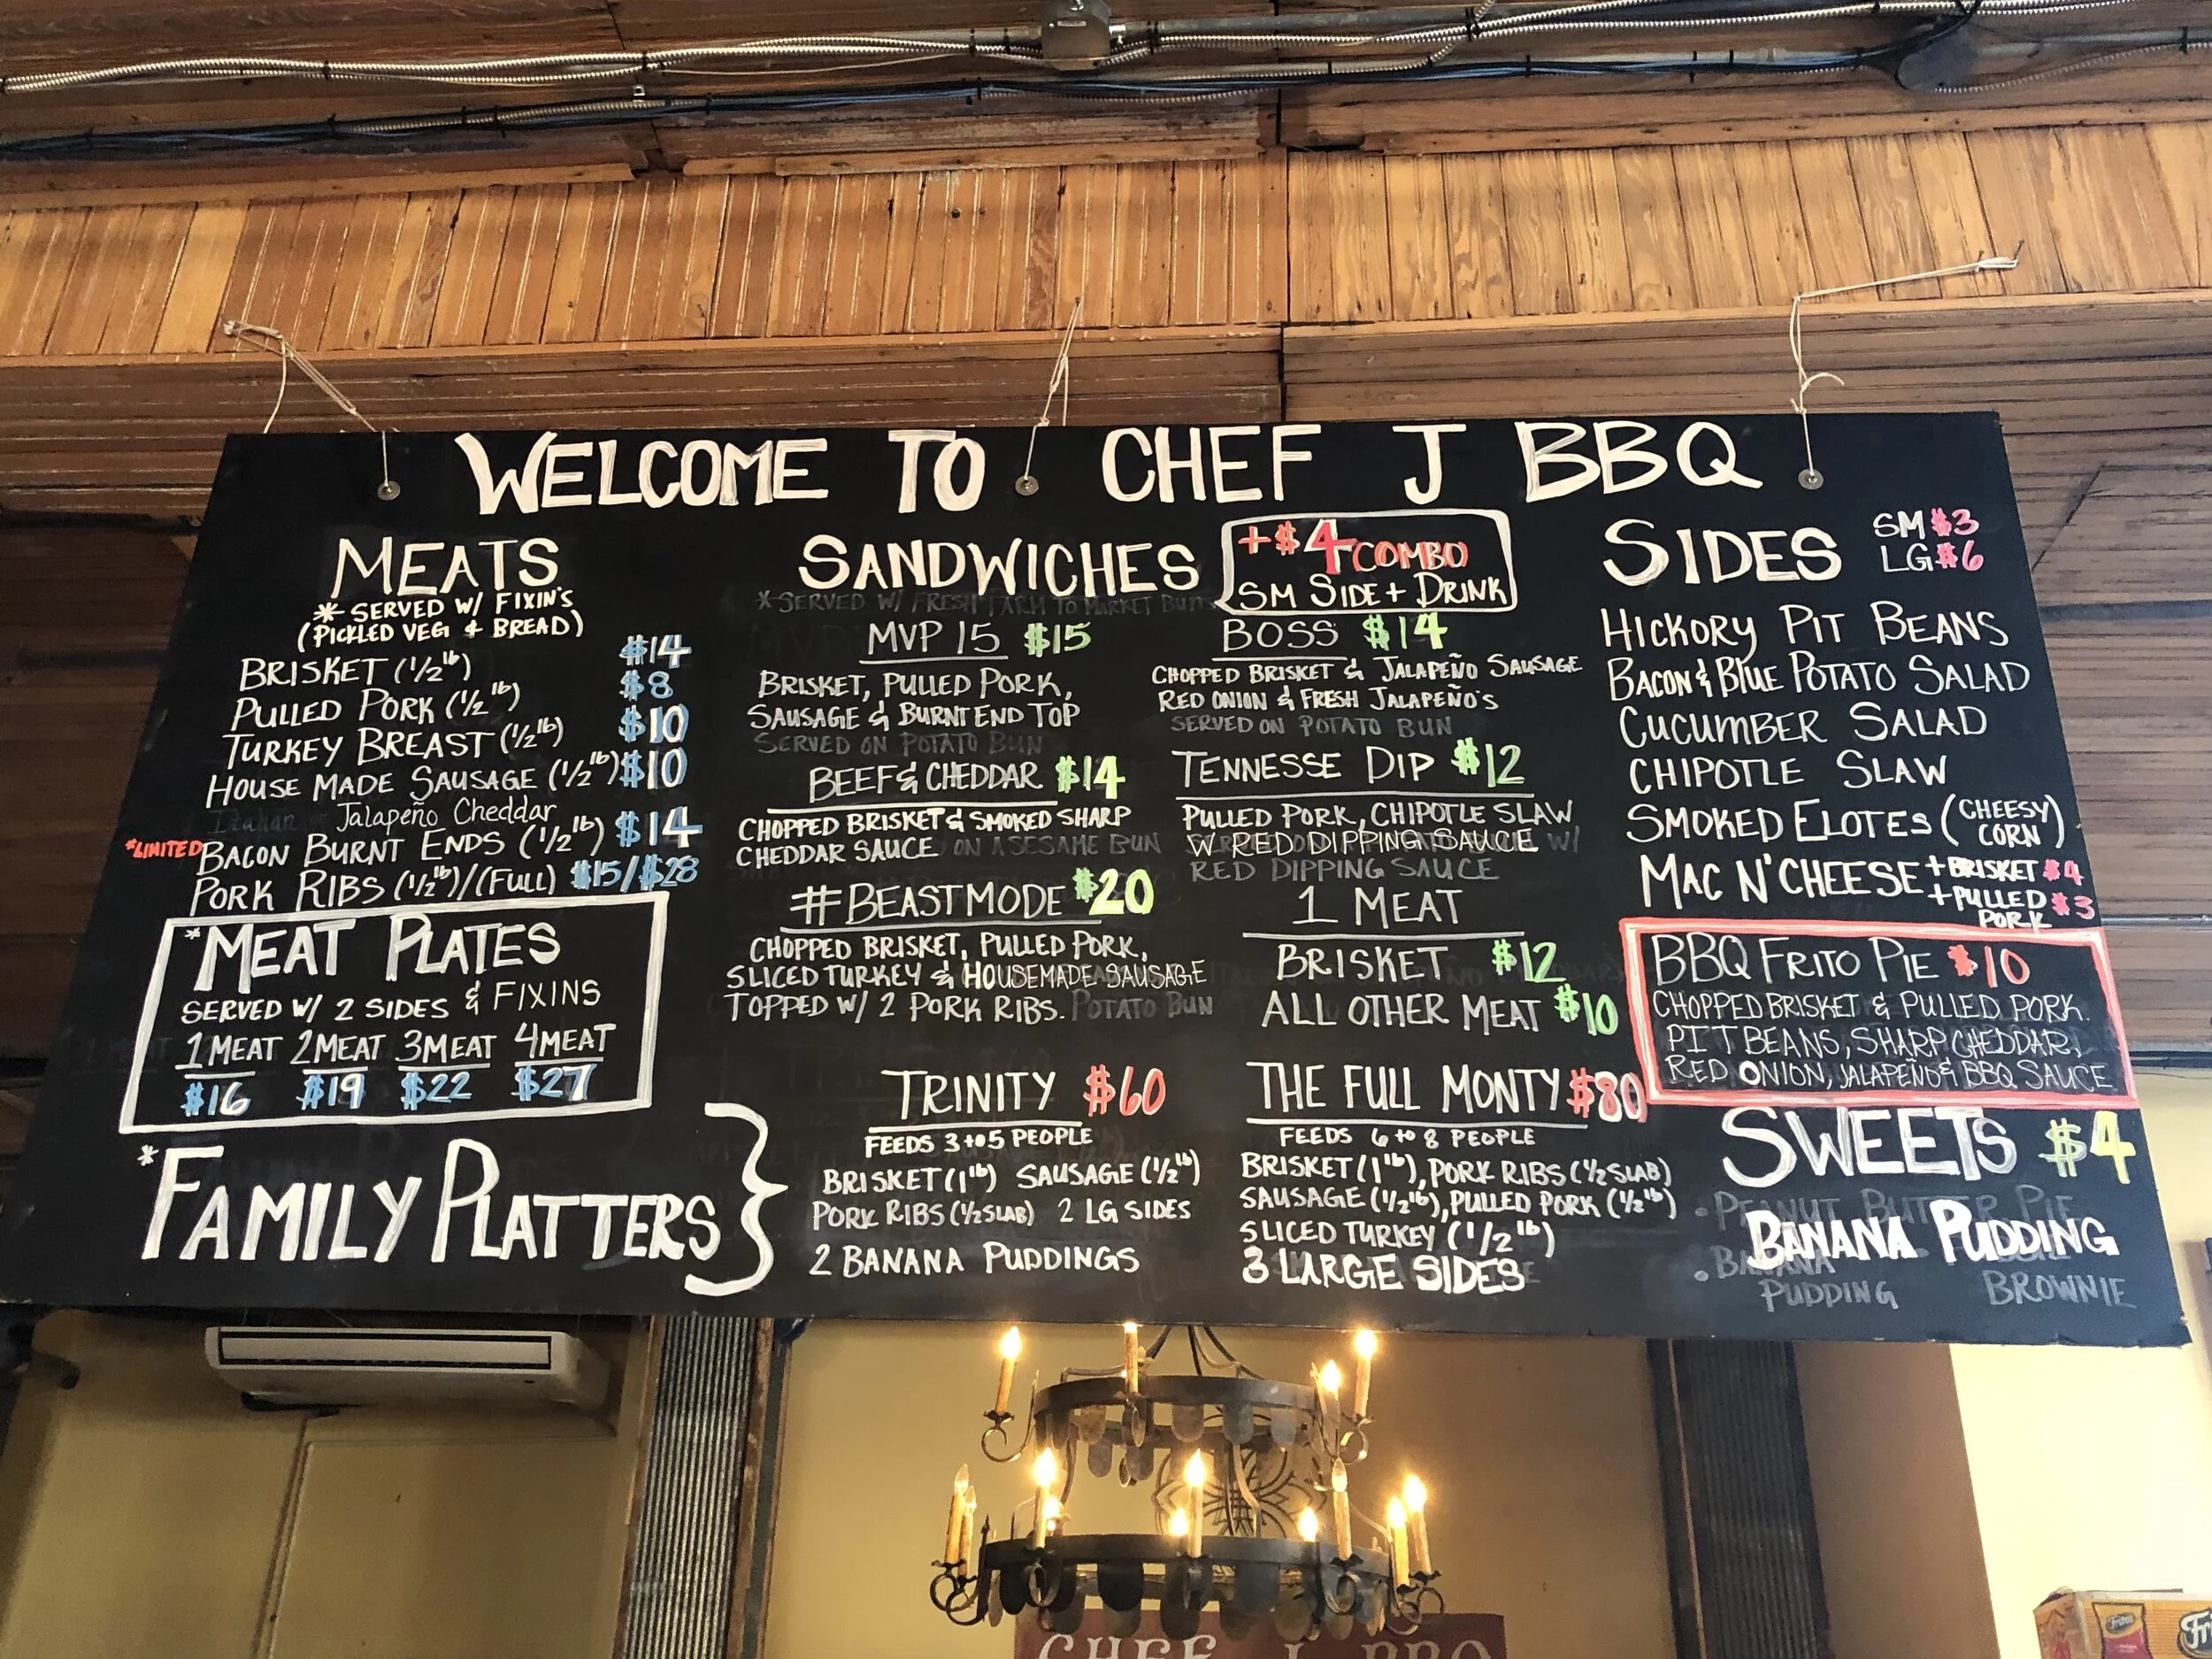 WELCOME TO CHEF J BBQ
MEATS
* SERVED W/ FIXIN'S
(PICKLED VEG & BREAD)
BRISKET (1/2 lb) $14
PULLED PORK (1/2 lb) $8
TURKEY BREAST (1/2 lb) $10
HOUSE MADE SAUSAGE (1/2 lb) $10
Italian or Jalapeño Cheddar
*LIMITED BACON BURNT ENDS (1/2 lb) $14
PORK RIBS (1/2 lb)/(FULL) $15/$28
*MEAT PLATES
SERVED W/ 2 SIDES & FIXINS
1 MEAT 2 MEAT 3 MEAT 4 MEAT
$16 $19 $22 $27
*FAMILY PLATTERS
SANDWICHES
*SERVED W/ FRESH FARM TO MARKET BUNS
+$4 COMBO
SM SIDE + DRINK
MVP 15 $15
BRISKET, PULLED PORK,
SAUSAGE & BURNT END TOP
SERVED ON POTATO BUN
BEEF & CHEDDAR $14
CHOPPED BRISKET & SMOKED SHARP
CHEDDAR SAUCE ON A SESAME BUN
#BEASTMODE $20
CHOPPED BRISKET, PULLED PORK,
SLICED TURKEY & HOUSEMADE SAUSAGE
TOPPED W/ 2 PORK RIBS. POTATO BUN
BOSS $14
CHOPPED BRISKET & JALAPEÑO SAUSAGE
RED ONION & FRESH JALAPEÑO'S
SERVED ON POTATO BUN
TENNESSE DIP $12
PULLED PORK, CHIPOTLE SLAW
W RED DIPPING SAUCE W/
RED DIPPING SAUCE
1 MEAT
BRISKET $12
ALL OTHER MEAT $10
TRINITY $60
FEEDS 3 to 5 PEOPLE
BRISKET (1 lb) SAUSAGE (1/2 lb)
PORK RIBS (1/2 SLAB) 2 LG SIDES
2 BANANA PUDDINGS
THE FULL MONTY $80
FEEDS 6 to 8 PEOPLE
BRISKET (1 lb), PORK RIBS (1/2 SLAB)
SAUSAGE (1/2 lb), PULLED PORK (1/2 lb)
SLICED TURKEY (1/2 lb)
3 LARGE SIDES
SIDES SM $3
LG $6
HICKORY PIT BEANS
BACON & BLUE POTATO SALAD
CUCUMBER SALAD
CHIPOTLE SLAW
SMOKED ELOTES (CHEESY CORN)
MAC N' CHEESE + BRISKET $4
+ PULLED PORK $3
BBQ FRITO PIE $10
CHOPPED BRISKET & PULLED PORK.
PIT BEANS, SHARP CHEDDAR,
RED ONION, JALAPEÑO & BBQ SAUCE
SWEETS $4
• PEANUT BUTTER PIE
BANANA PUDDING
• BANANA
PUDDING BROWNIE
CHEF J BBQ
Fritos